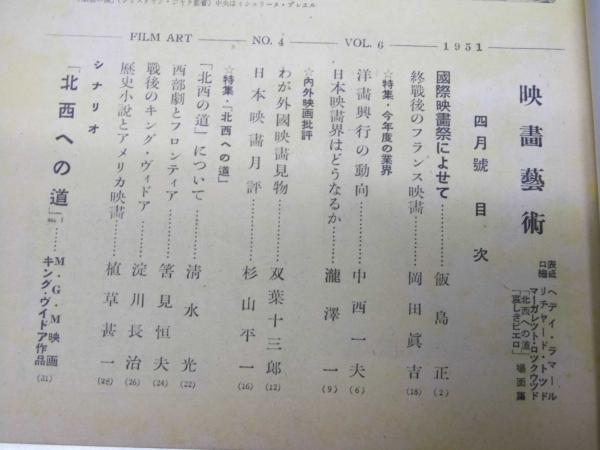 FILM ART ― NO. 4 ― VOL. 6 ― 1951
映畫藝術
四月號 目次
表紙 ヘディ・ラマール
口繪 リチャード・トッド
マーガレット・ロックウッド
「北西への道」
「哀しきピエロ」 場面集
國際映畫祭によせて………飯島正(2)
終戰後のフランス映畫………岡田眞吉(18)
☆特集・今年度の業界
洋畫興行の動向………中西一夫(6)
日本映畫界はどうなるか………瀧澤一(9)
☆內外映画批評
わが外國映畫見物………双葉十三郎(12)
日本映畫月評………杉山平一(16)
☆特集・「北西への道」
「北西の道」について………清水光(22)
西部劇とフロンティア………筈見恒夫(24)
戰後のキング・ヴィドア………淀川長治(26)
歷史小說とアメリカ映畫………植草甚一(28)
シナリオ
「北西への道」………M・G・M映画
キング・ヴィドア作品(31)